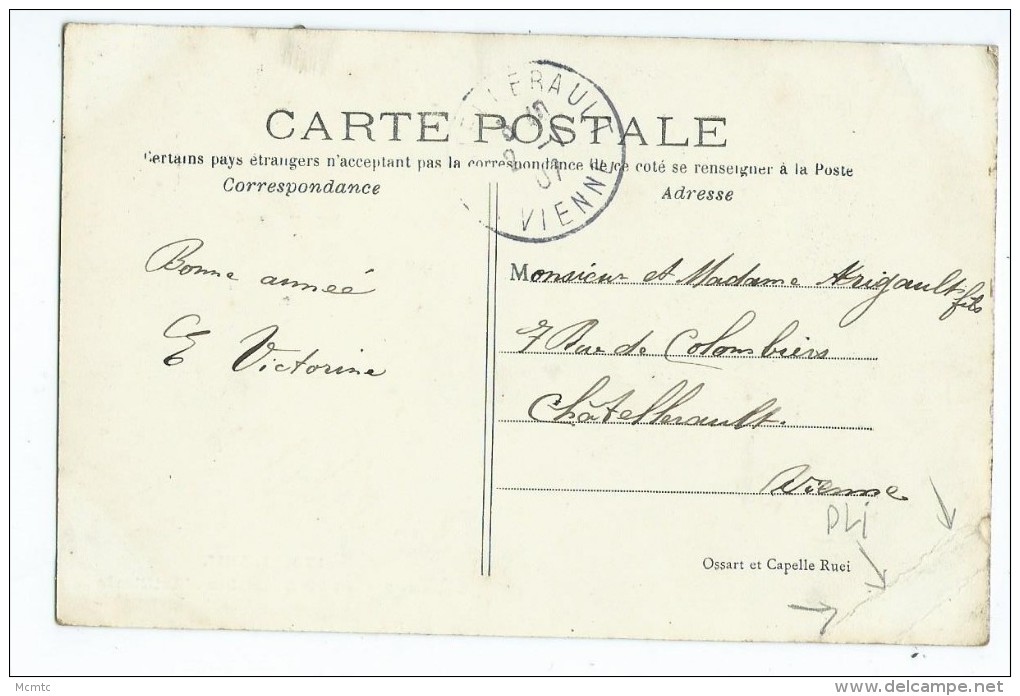 CARTE POSTALE
Certains pays étrangers n'acceptant pas la correspondance de ce coté se renseigner à la Poste
Correspondance
Adresse
VIENNE
Bonne année
E Victorine
Monsieur et Madame Arigault fils
7 Rue de Colombiers
Châtellerault
Vienne
PLI
Ossart et Capelle Ruei
Mcmtc
delcampe.net